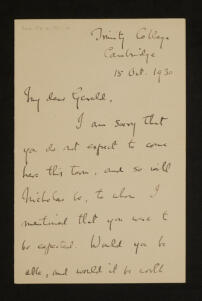 Trinity College
Cambridge
15 Oct. 1930
My dear Gerald,
I am sorry that
you do not expect to come
here this term, and so will
Nicholas be, to whom I
mentioned that you were to
be expected. Would you be
able, and would it be worth